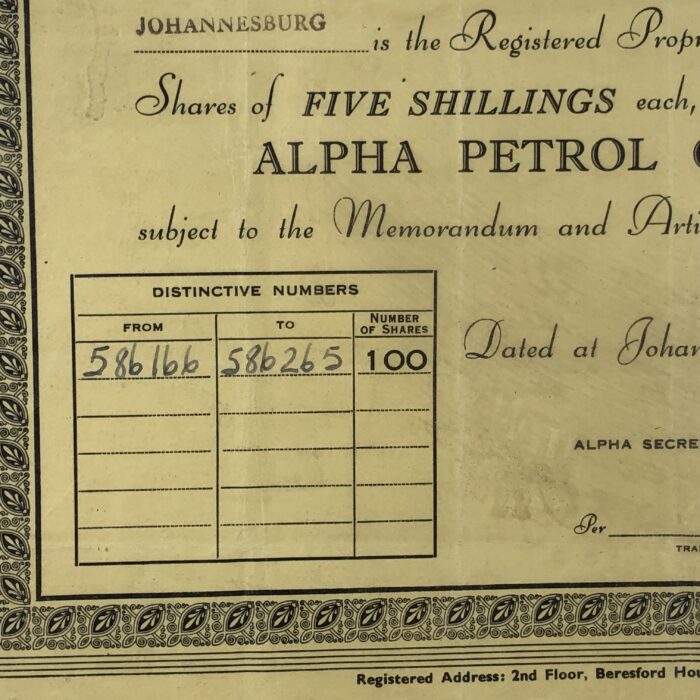 JOHANNESBURG
is the Registered Propr
Shares of FIVE SHILLINGS each,
ALPHA PETROL
subject to the Memorandum and Arti
DISTINCTIVE NUMBERS
FROM TO NUMBER OF SHARES
586166 586265 100
Dated at Johan
ALPHA SECRE
Per
TRA
Registered Address: 2nd Floor, Beresford Hou